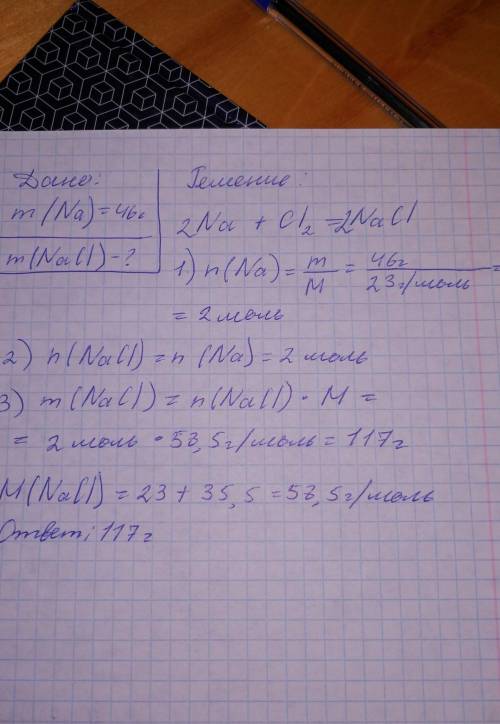 Дано:
m(Na)=46г
m(NaCl)-?
Решение:
2Na + Cl₂ =2NaCl
1) n(Na)= m/M = 46г/23г/моль =
= 2 моль
2) n(NaCl)= n(Na)= 2 моль
3) m(NaCl)= n(NaCl)·M =
= 2 моль · 58,5г/моль= 117г
M(NaCl)=23+35,5=58,5г/моль
Ответ: 117г